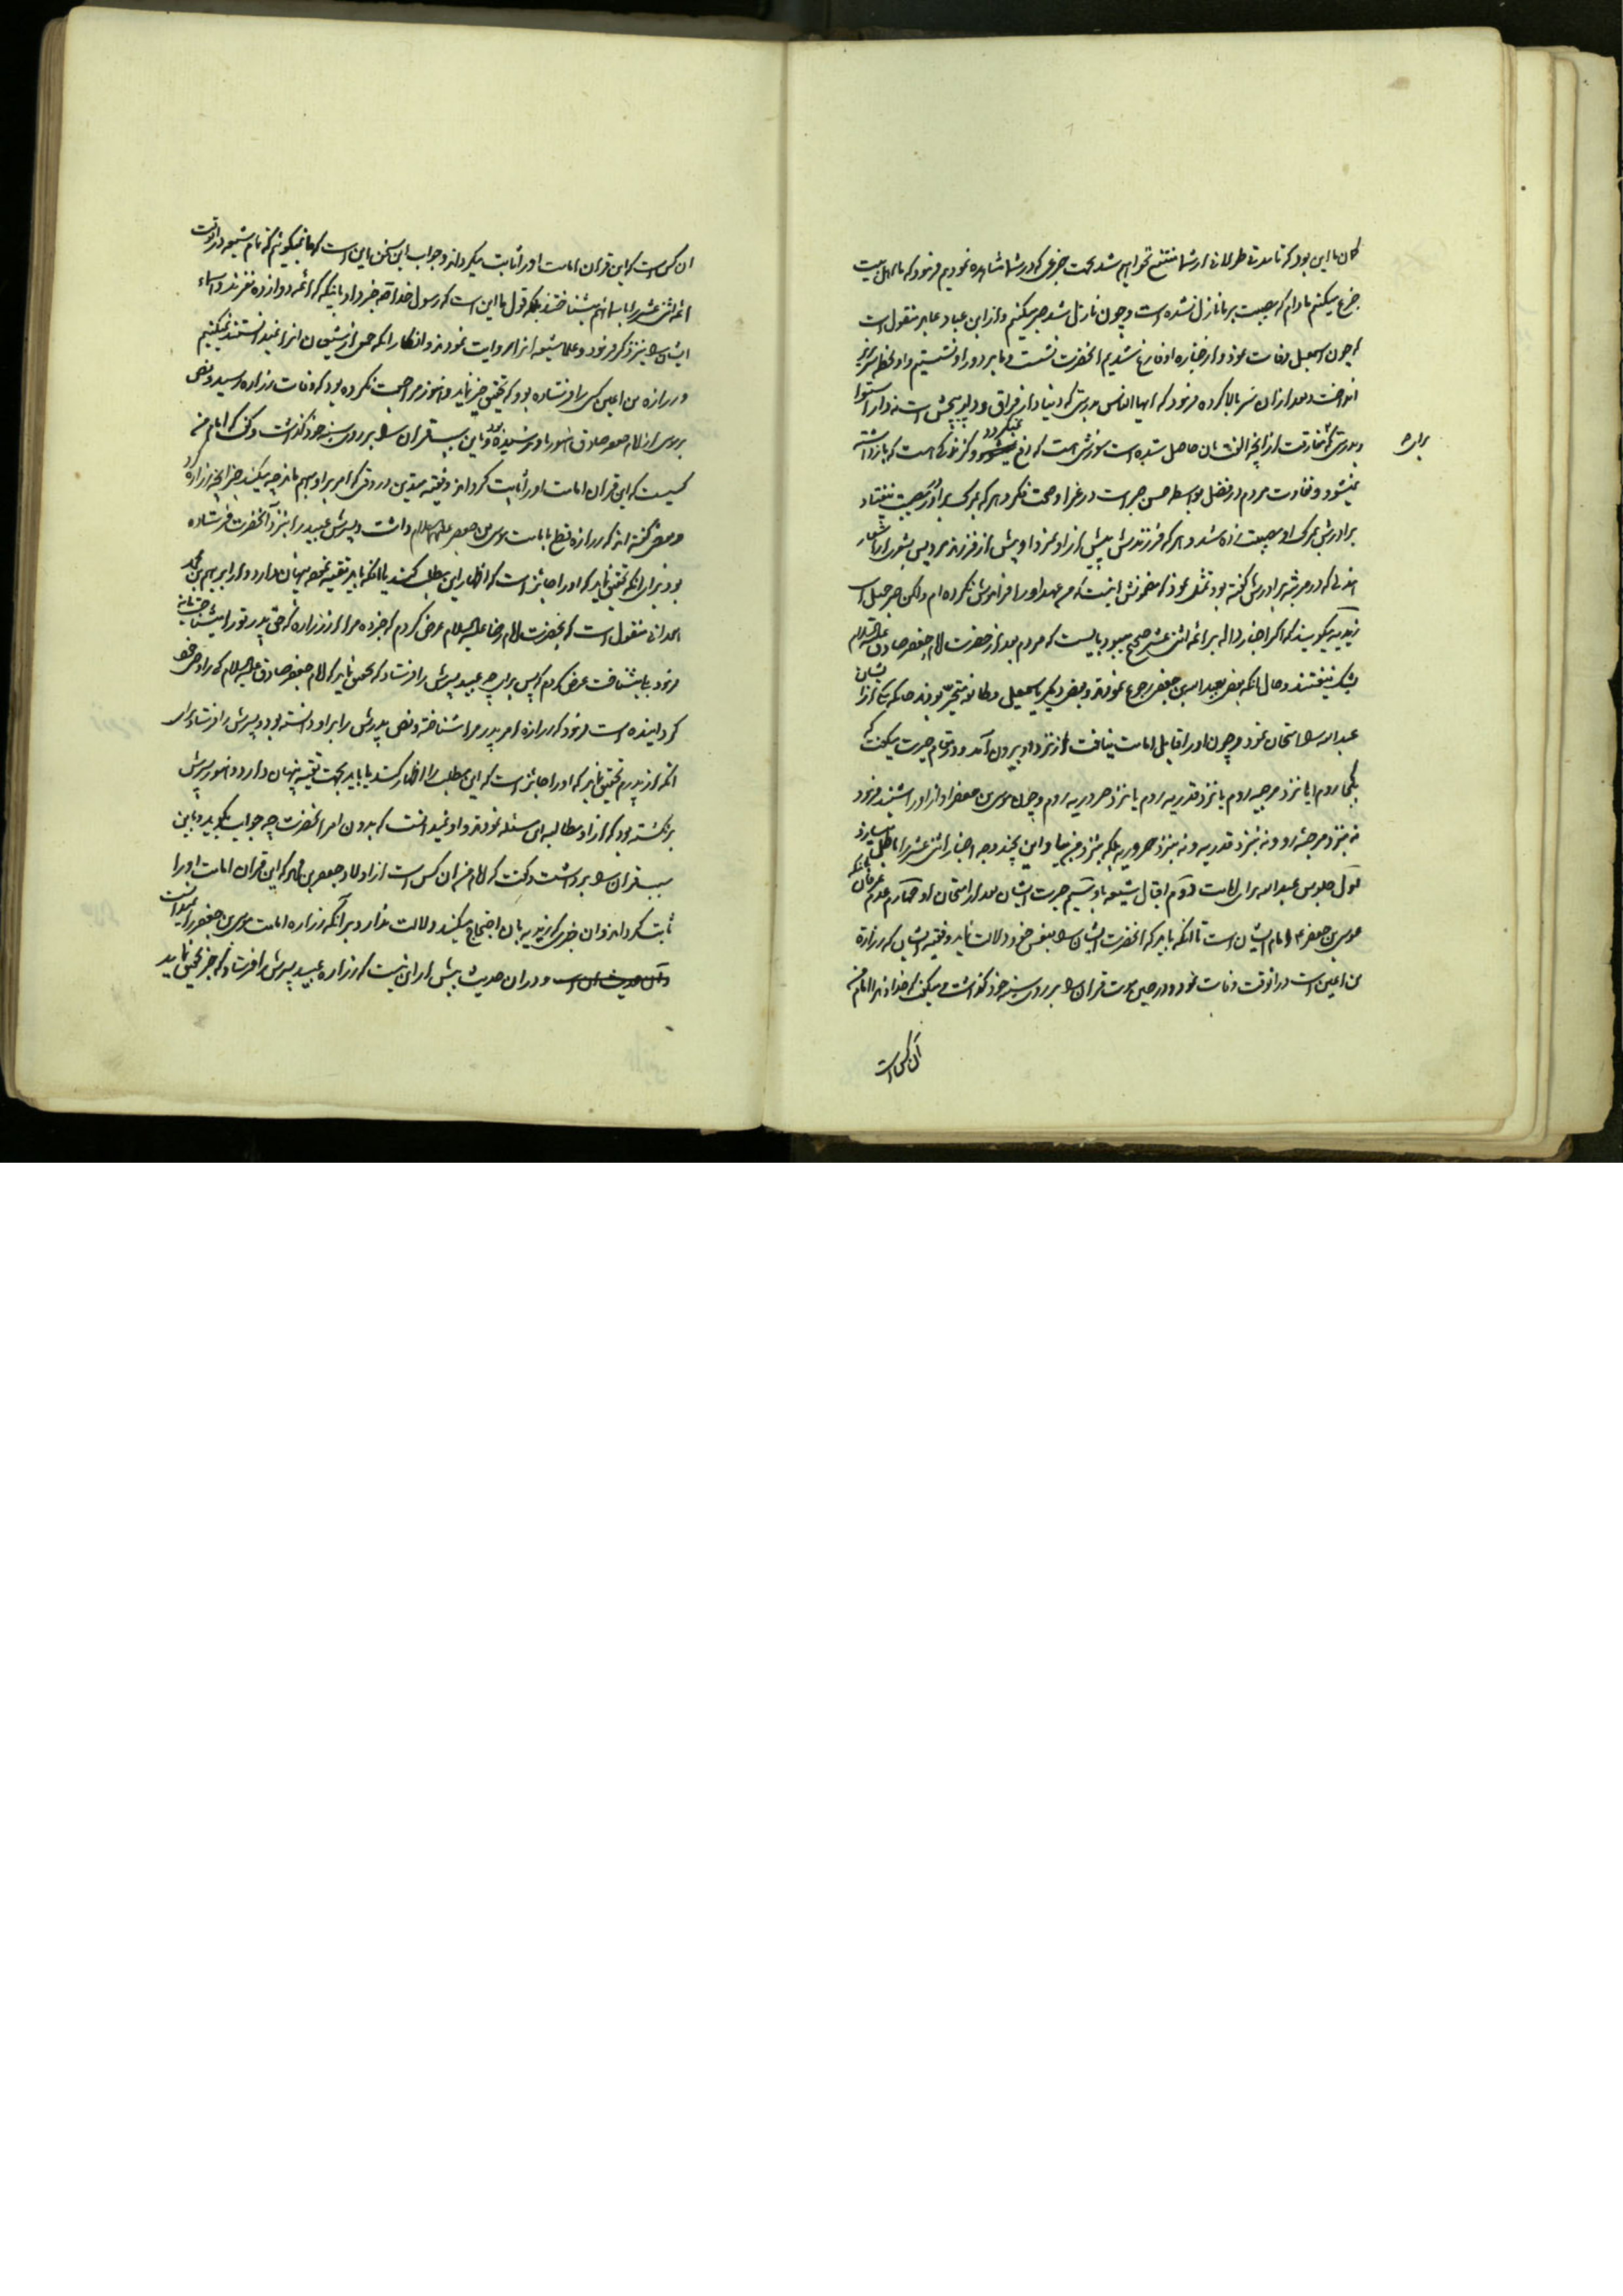 کان ما این بود که تا مدتی طولانی از شما منتفع نخواهیم شد بجهت جزعی که در شما مشاهده نمودیم فرمود که ما اهل بیت
جزع میکنیم مادام که مصیبت بر ما نازل نشده است و چون نازل شد صبر میکنیم و از ابن عباد عابد منقول است
که چون اسمعیل وفات نمود و از جنازه او فارغ شدیم آنحضرت نشست و ما بر دور او نشستیم و او لحظه سر بزیر
انداخت و بعد از آن سر بالا کرده فرمود که ایها الناس بدرستی که دنیا دار فراق و دار پیچش است نه دار استوا
و بدرستی که مفارقت از آنچه الفت بان حاصل شده است سوزشی است که دفع نمیگردد
برای
نمیشود و تفاوت مردم در فضل بواسطه حسن صبر است در عزا و صحت فکر و هر که بمرگ برادر مصیبت نیفتاد
برادرش بمرگ او مصیبت زده شد و هر که فرزندش پیش از او نمرد او پیش از فرزند مرد پس بشعر
که در مرثیه برادرش گفته بود تمثل نمود که مضمونش اینست که من عهد او را فراموش نکرده ام ولکن صبر جمیل است
زیدیه میگویند که اگر اخبار داله بر ائمه اثنی عشر صحیح میبود بایست که مردم بعد از حضرت امام جعفر صادق علیه السلام
بشک نیفتند و حال آنکه بعضی بعبد الله بن جعفر رجوع نمودند و بعضی دیگر باسمعیل و طایفه متحیر بودند
عبد الله را امتحان نمود و چون او را قابل امامت نیافت از نزد او بیرون آمد و در مقام حیرت میگفت که
بکجا روم ایا نزد مرجئه روم یا نزد قدریه روم یا نزد حروریه روم و چون موسی بن جعفر آواز او را شنید فرمود
نه بنزد مرجئه رو و نه بنزد قدریه و نه بنزد حروریه بلکه بنزد من بیا و این بچند وجه اخبار اثنی عشر را باطل میسازد
اول جلوس عبد الله برای امامت دوم اقبال شیعه باو سیم حیرت ایشان بعد از امتحان او چهارم عدم عرفان آنکه
موسی بن جعفر امام ایشان است تا آنکه آنحضرت ایشان را بنفس خود دلالت نماید و فقیه ایشان که زراره
بن اعین است در آنوقت وفات نمود و در حین موت قرآن را بر روی سینه خود گذاشت و میگفت که خداوندا امام من
آن کس است
ان کس است که این قرآن امامت او را ثابت میگرداند و جواب این سخن باین است که ما نمیگوئیم که تمام شیعه در آنوقت
ائمه اثنی عشر را باسمائهم میشناختند بلکه قول ما این است که رسول خدا خبر داد باینکه که ائمه دوازده نفرند و اسماء
ایشان را نیز ذکر فرمود و علماء شیعه آنرا روایت نمودند و انکار آنکه جمعی از شیعیان انرا نمیدانستند نمیکنیم
و زراره بن اعین کس را فرستاده بود که تحقیق خبر نماید و هنوز مراجعت نکرده بود که وفات زراره رسید و نص
بر موسی از امام جعفر صادق هنوز باو نرسیده بود و باین سبب قرآن را بر روی سینه خود گذاشت و گفت که امام من
کسیست که این قرآن امامت او را ثابت گرداند و فقیه متدین در وقتی که امر بر او مبهم ماند چه میکند جز آنچه زراره کرد
و بعضی گفته اند که زراره قطع بامامت موسی بن جعفر علیهما السلام داشت و پسرش عبید را بنزد آنحضرت فرستاده
بود برای آنکه تحقیق نماید که او را جایز است که اظهار این مطلب کند یا آنکه باید تقیه نموده پنهان دارد و از ابراهیم بن محمد
همدانی منقول است که بحضرت امام رضا علیه السلام عرض کردم که خبر ده مرا از زراره که حق پدر تو را میشناخت یا نه
فرمود بلی میشناخت عرض کردم که پس برای چه عبید پسرش را فرستاد که تحقیق نماید که امام جعفر صادق علیه السلام که را وصی خود
گردانیده است فرمود که زراره امر پدر مرا شناخته و نص پدرش را بر او دانسته بود و پسرش را فرستاد برای
آنکه از پدرم تحقیق نماید که او را جایز است که این مطلب را اظهار کند یا باید بجهت تقیه پنهان دارد و هنوز پسرش
برنگشته بود که از او مطالبه این مسئله نمودند و او نمیدانست که بدون امر آنحضرت چه جواب بگوید و باین
سبب قرآن را برداشت و گفت که امام من آن کس است از اولاد جعفر بن محمد که این قرآن امامت او را
ثابت گرداند و آن خبری که زیدیه بان احتجاج میکنند دلالت ندارد بر آنکه زراره امامت موسی بن جعفر را نمیدانست
و در آن حدیث بیش از این نیست که زراره عبید پسرش را فرستاد که خبر تحقیق نماید